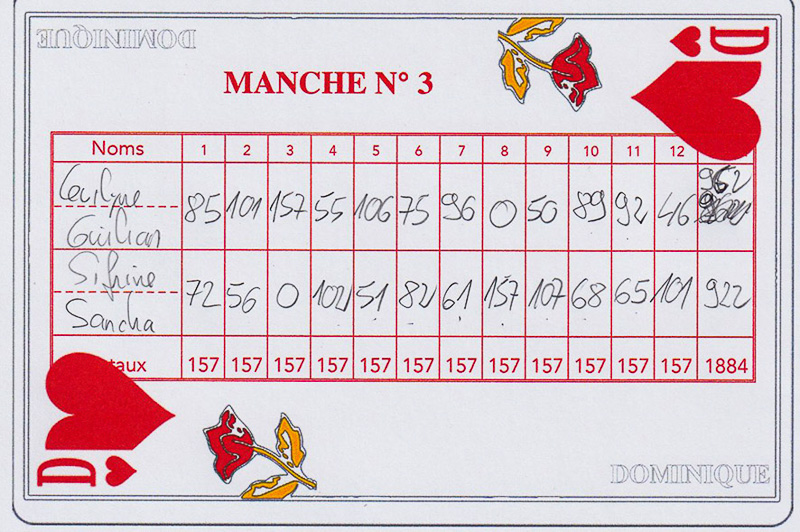 DOMINIQUE
D
MANCHE N° 3
Noms 1 2 3 4 5 6 7 8 9 10 11 12
85 101 157 55 106 75 96 0 50 89 92 46 962
Guilian
Sifrine
72 56 0 102 51 82 61 157 107 68 65 101 922
Sancha
taux 157 157 157 157 157 157 157 157 157 157 157 157 1884
D
DOMINIQUE